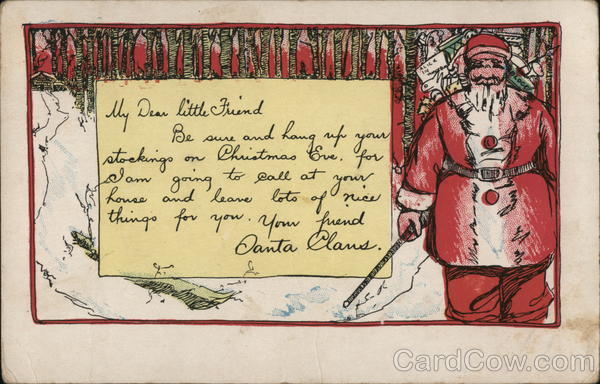 My Dear little Friend
Be sure and hang up your
stockings on Christmas Eve. for
I am going to call at your
house and leave lots of nice
things for you. Your friend
Santa Claus.
CardCow.com